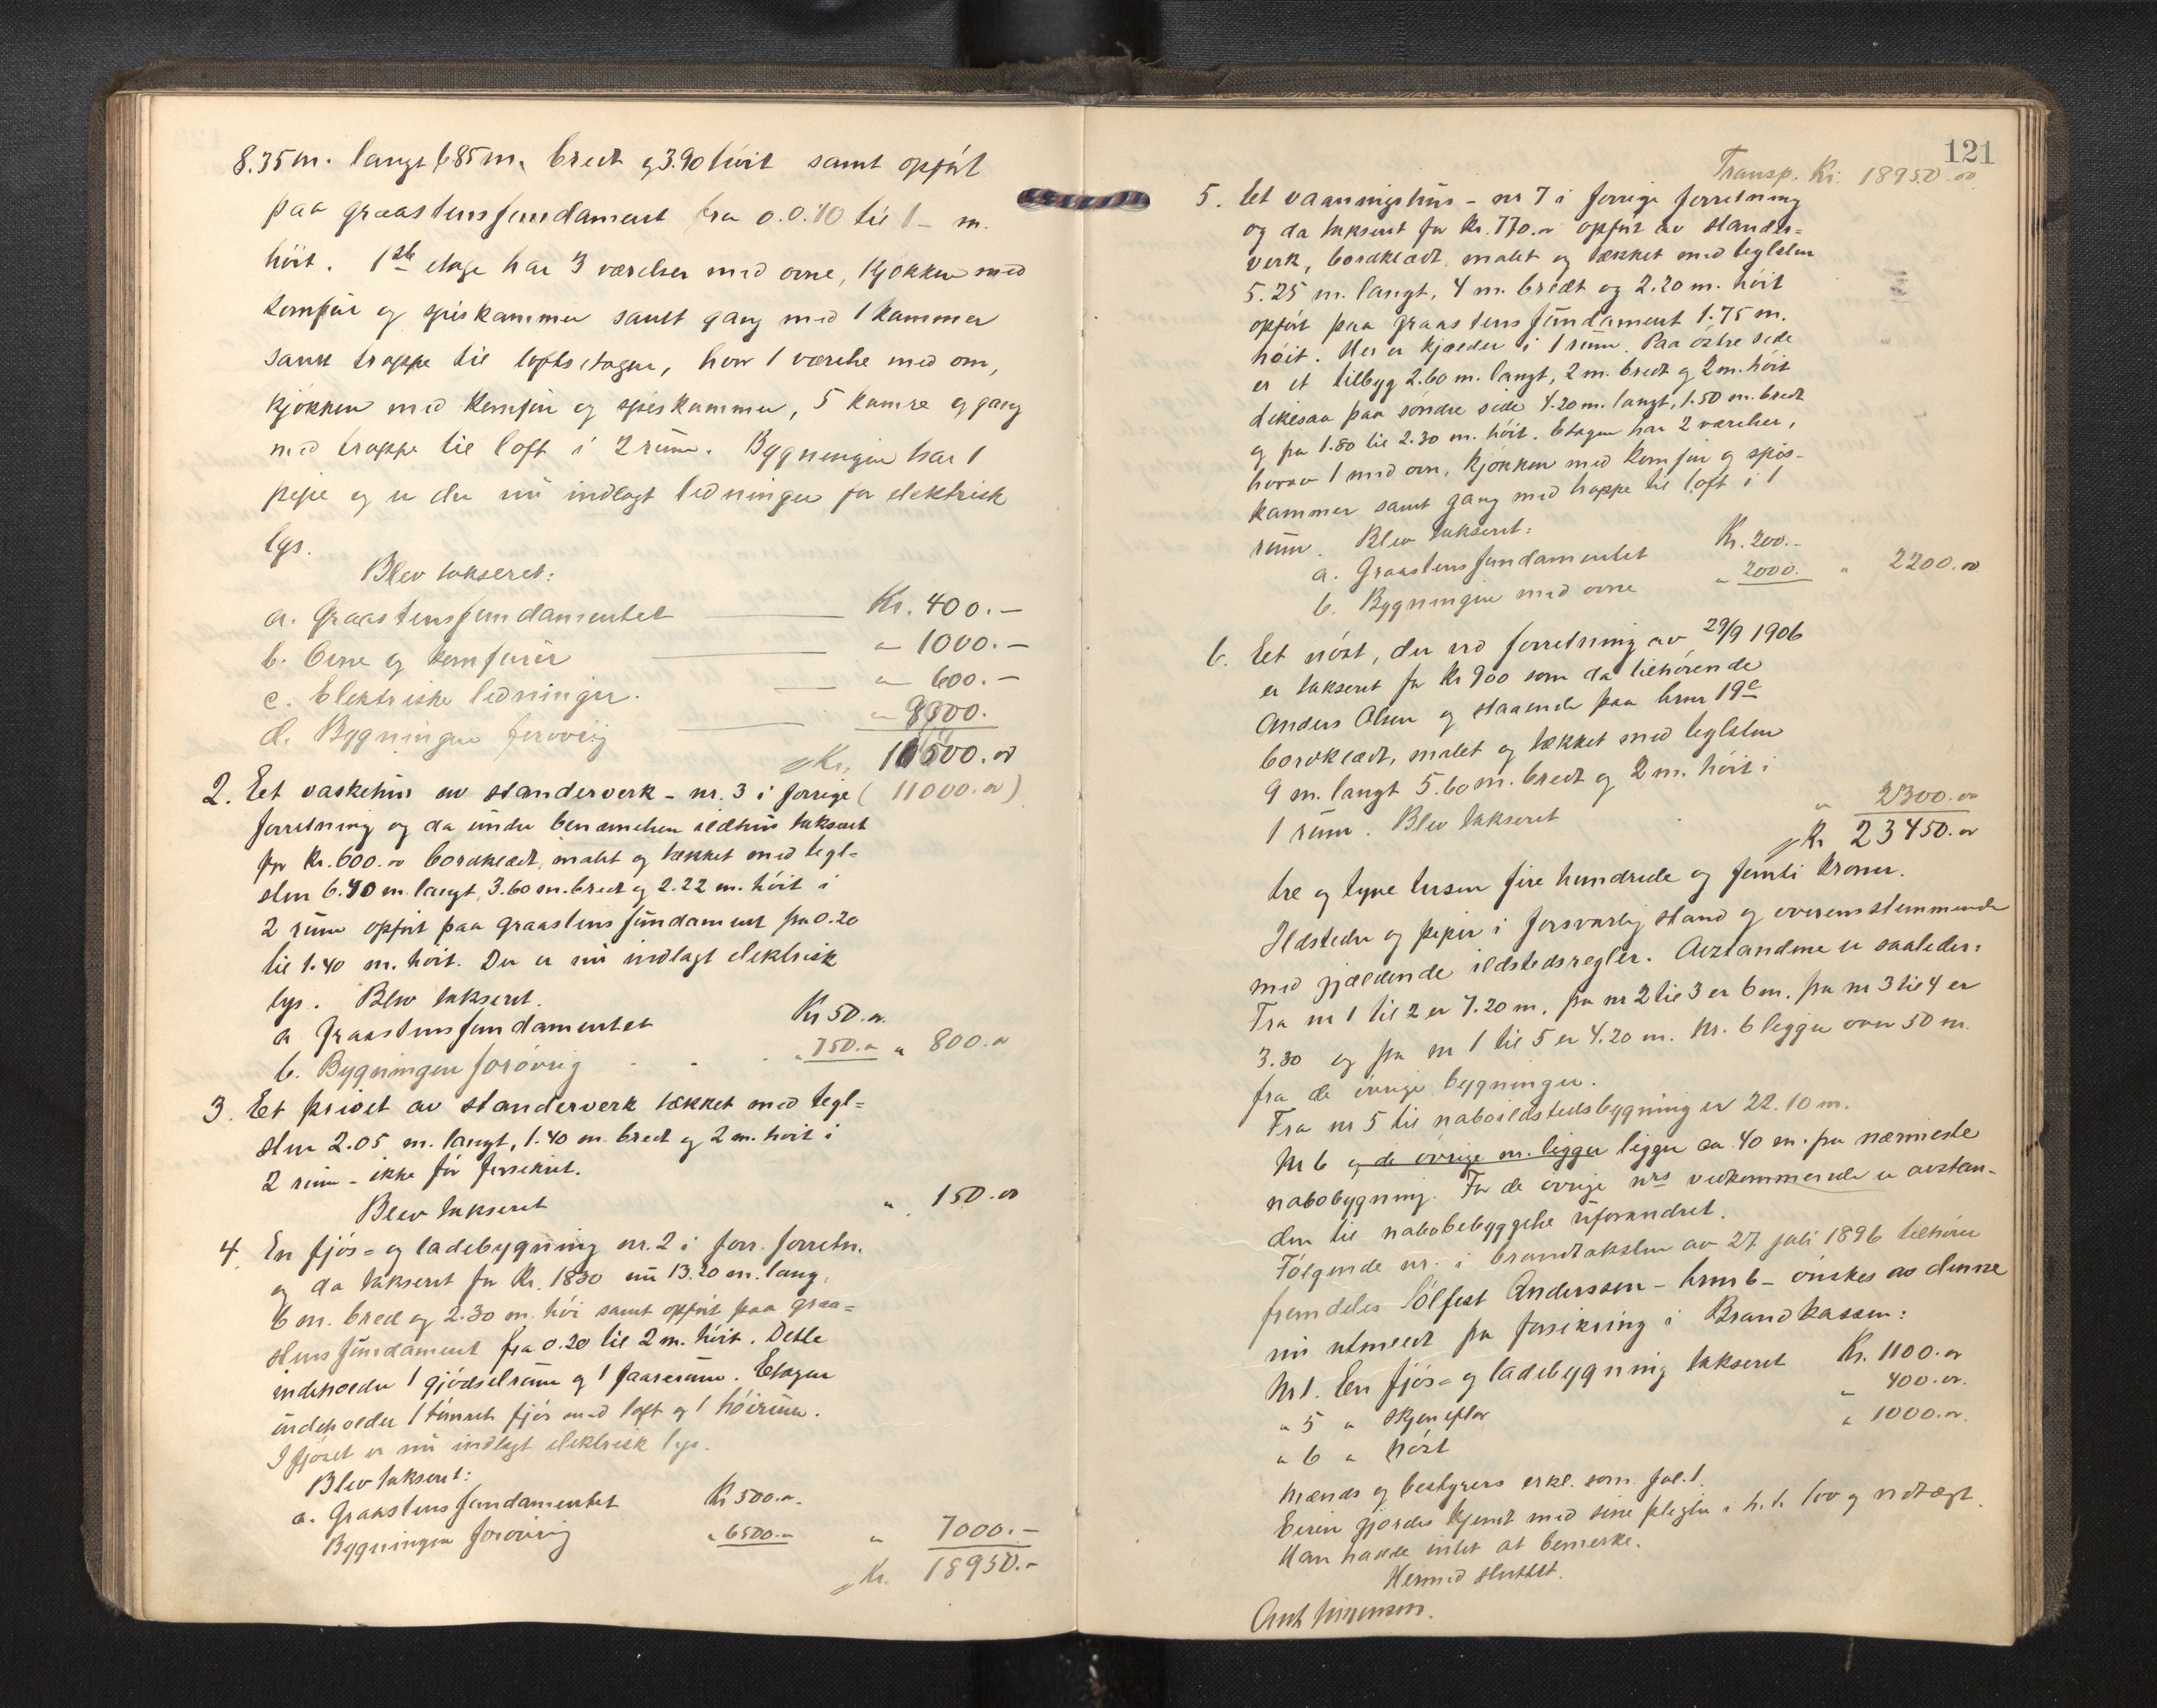 8.35 m. langt 6.85 m. bredt og 3.90 høit samt opført
paa graastensfundament fra 0.0.10 til 1 – m.
høit. 1ste etage har 3 værelser med ovne, kjøkken med
komfur og spiskammer samt gang med 1 kammer
samt trappe til loftsetagen, hvor 1 værelse med ovn,
kjøkken med komfur og spiskammer, 5 kamre og gang
med trappe til loft i 2 rum. Bygningen har 1
pipe og er der nu indlagt ledninger for elektrisk
lys.
Blev takseret:
a. Graastensfundamentet Kr. 400.–
b. Ovne og komfurer " 1000.–
c. Elektriske ledninger. " 600.–
d. Bygningen forøvrig " 9000.
Kr. 11000.00
(11000.00)
2. Eet vaskehus av standerverk – nr. 3 i forrige
forretning og da under benævnelsen ildhus takseret
for Kr. 600.00 bordklædt, malt og tækket med tegl=
sten 6.40 m. langt, 3.60 m. bredt og 2.22 m. høit i
2 rum opført paa graastensfundament fra 0.20
til 1.40 m. høit. Der er nu indlagt elektrisk
lys. Blev takseret.
a Graastensfundamentet Kr 50.00
b. Bygningen forøvrig " 750.00 " 800.00
3. Et privet av standerverk tækket med tegl=
sten 2.05 m. langt, 1.40 m. bredt og 2 m. høit i
2 rum – ikke før forsikret.
Blev takseret " 150.00
4. En fjøs= og ladebygning nr. 2 i forr. forretn.
og da takseret for Kr. 1830 nu 13.20 m. lang,
6 m. bred og 2.30 m. høi samt opført paa graa=
stensfundament fra 0.20 til 2 m. høit. Dette
indeholder 1 gjødselrum og 1 faarerum. Etagen
indeholder 1 tømret fjøs med loft og 1 høirum.
I fjøset er nu indlagt elektrisk lys.
Blev takseret:
a. Graastensfundamentet Kr 500.00
Bygningen forøvrig " 6500.00 " 7000.–
Kr. 18950.–
121
Transp. Kr. 18950.00
5. Et vaaningshus – nr 7 i forrige forretning
og da takseret for Kr. 770.00 opført av stander=
verk, bordklædt, malet og tækket med teglsten
5.25 m. langt, 4 m. bredt og 2.20 m. høit
opført paa graastensfundament 1.75 m.
høit. Her er kjælder i 1 rum. Paa østre side
er et tilbyg 2.60 m. langt, 2 m. bredt og 2 m. høit
likesaa paa søndre side 4.20 m. langt, 1.50 m. bredt
og fra 1.80 til 2.30 m. høit. Etagen har 2 værelser,
hvorav 1 med ovn, kjøkken med komfur og spis-
kammer samt gang med trappe til loft i 1
rum. Blev takseret:
a. Graastensfundamentet Kr. 200.–
b. Bygningen med ovne " 2000. " 2200.00
6. Eet nøst, der ved forretning av 29/9 1906
er takseret for Kr 900 som da tilhørende
Anders Olsen og staaende paa brnr 19c
bordklædt, malet og tækket med teglsten
9 m. langt 5.60 m. bredt og 2 m. høit i
1 rum. Blev takseret " 2300.00
Kr 23450.00
tre og tyve tusen fire hundrede og femti kroner.
Ildsteder og piper i forsvarlig stand og overensstemmende
med gjældende ildstedsregler. Avstandene er saaledes:
Fra nr 1 til 2 er 7.20 m, fra nr 2 til 3 er 6 m. fra nr 3 til 4 er
3.30 og fra nr 1 til 5 er 4.20 m. Nr. 6 ligger over 50 m.
fra de øvrige bygninger.
Fra nr 5 til naboildstedsbygning er 22.10 m.
Nr 6 og de øvrige nr. ligger ligger ca 40 m. fra nærmeste
nabobygning. For de øvrige nrs vedkommende er avstan-
den til nabobebyggelse uforandret.
Følgende nr. i brandtaksten av 27 juli 1896 tilhører
fremdeles Sølfest Anderssen – brnr 6 – ønskes av denne
nu utmeldt fra forsikring i Brandkassen:
Nr 1. En fjøs= og ladebygning takseret Kr. 1100.00
" 5 " skjeneflor " 400.00
" 6 " nøst " 1000.00
Mænds og bestyrers erkl. som fol. 1.
Eieren gjordes kjent med sine pligter i h. t. lov og vedtægt.
Han hadde intet at bemerke.
Hermed sluttet.